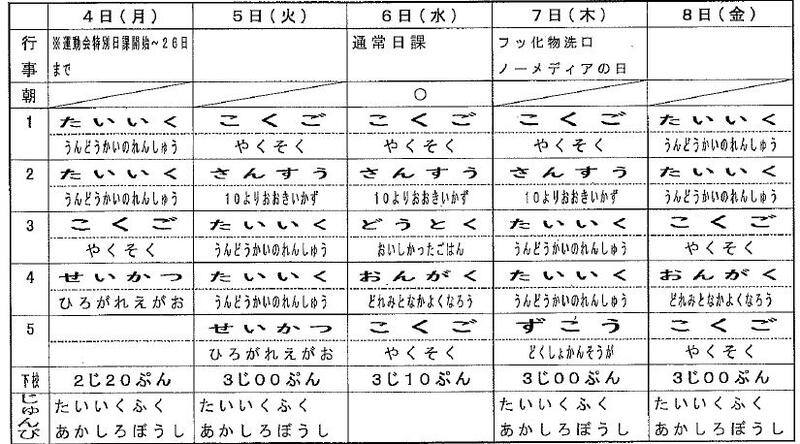 4日(月) 5日(火) 6日(水) 7日(木) 8日(金)
行事 ※運動会特別日課開始~26日 通常日課 フッ化物洗口
まで ノーメディアの日
朝 ○
1 たいいく こくご こくご こくご たいいく
うんどうかいのれんしゅう やくそく やくそく やくそく うんどうかいのれんしゅう
2 たいいく さんすう さんすう さんすう たいいく
うんどうかいのれんしゅう 10よりおおきいかず 10よりおおきいかず 10よりおおきいかず うんどうかいのれんしゅう
3 こくご たいいく どうとく たいいく こくご
やくそく うんどうかいのれんしゅう おいしかったごはん うんどうかいのれんしゅう やくそく
4 せいかつ たいいく おんがく たいいく おんがく
ひろがれえがお うんどうかいのれんしゅう どれみとなかよくなろう うんどうかいのれんしゅう どれみとなかよくなろう
5 せいかつ こくご ずこう こくご
ひろがれえがお やくそく どくしょかんそうが やくそく
下校 2じ20ぷん 3じ00ぷん 3じ10ぷん 3じ00ぷん 3じ00ぷん
じゅんび たいいくふく たいいくふく たいいくふく たいいくふく
あかしろぼうし あかしろぼうし あかしろぼうし あかしろぼうし